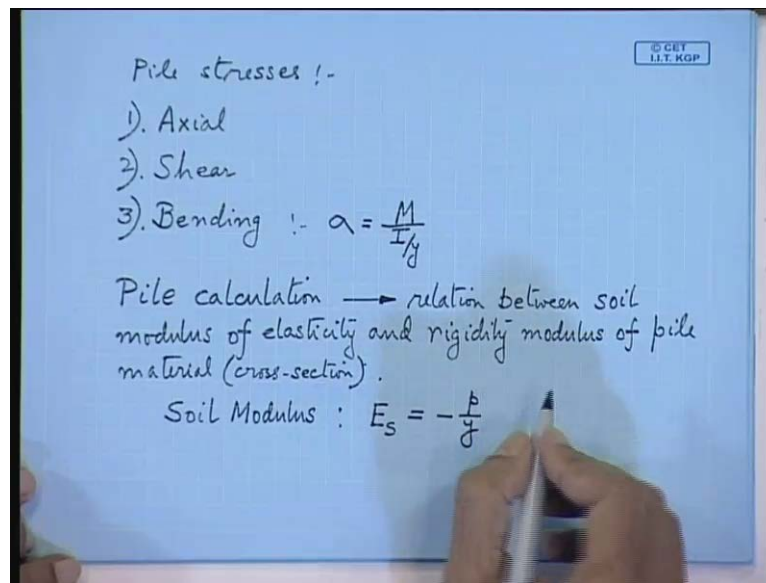 Pile stresses :-
© CET
I.I.T. KGP
1). Axial
2). Shear
3). Bending :- a = M / I/y
Pile calculation → relation between soil
modulus of elasticity and rigidity modulus of pile
material (cross-section).
Soil Modulus : Es = - p/y